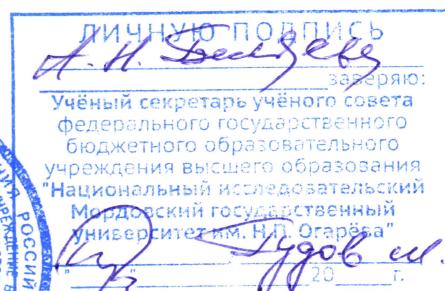 ЛИЧНУЮ ПОДПИСЬ
А. Н.
заверяю:
Учёный секретарь учёного совета
федерального государственного
бюджетного образовательного
учреждения высшего образования
"Национальный исследовательский
Мордовский государственный
университет им. Н.П. Огарёва"
Гудов
" " 20 г.
РОССИЙ